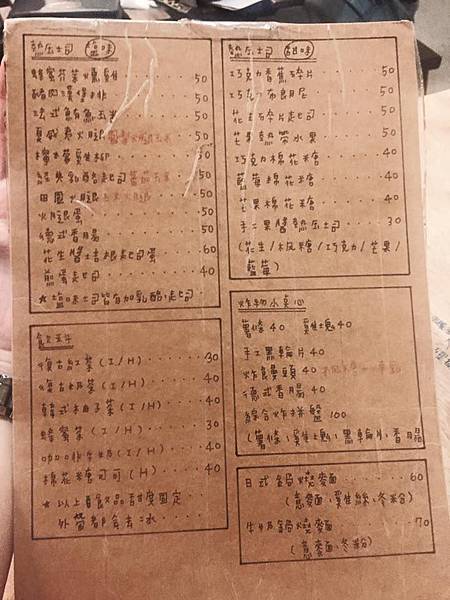 熱压土司 鹹味
蜂蜜芥茉燻雞 50
豬肉漢堡排 50
法式鮪魚玉米 50
夏威夷火腿 50
50
經典乳酪起司 50
田園火腿 50
火腿蛋 50
德式香腸 50
花生醬起司蛋 60
煎蛋起司 40
★鹹味土司皆有加乳酪起司
飲料
復古紅茶(I/H) 30
復古奶茶(I/H) 40
韓式柚子茶(I/H) 40
蜂蜜茶(I/H) 30
咖啡牛奶(I/H) 40
棉花糖可可(H) 40
★以上飲品甜度固定
外帶都會去冰
熱压土司 甜味
巧克力香蕉碎片 50
巧克力布朗尼 50
花生碎片起司 50
芒果熱帶水果 50
巧克力棉花糖 40
藍莓棉花糖 40
芒果棉花糖 40
手工果醬熱压土司 30
(花生/楓糖/巧克力/芒果/
藍莓)
炸物小点心
薯條 40 雞塊 40
手工黑輪片 40
炸饅頭 40
德式香腸 40
綜合炸拼盤 100
(薯條、雞塊、黑輪片、香腸
日式鍋燒麵 60
(意麵、雞絲、冬粉)
牛奶鍋燒麵 70
(意麵、冬粉)